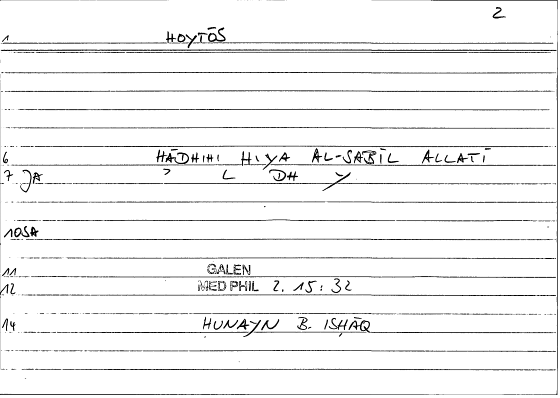 2
1 HOYTŌS
6 HĀDHIHI HIYA AL-SABĪL ALLATĪ
7 JA ʾ L DH Y
10SA
11 GALEN
12 MED PHIL 2. 15:32
14 ḤUNAYN B. ISḤĀQ